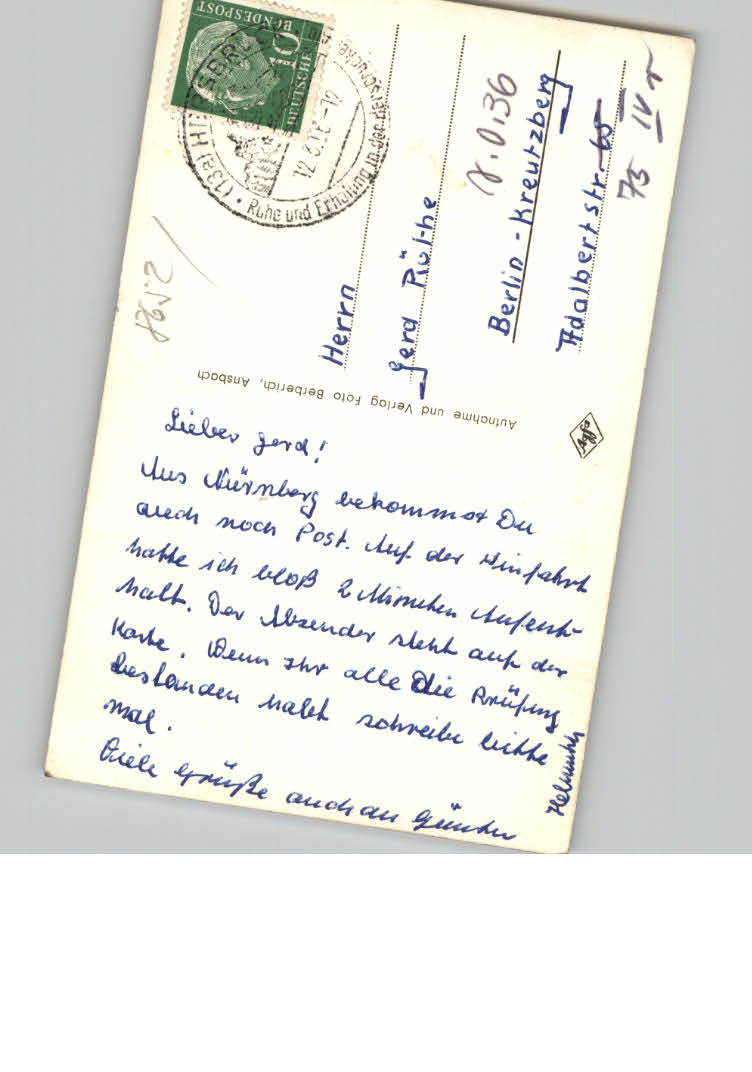 Lieber Gerd!
Aus Nürnberg bekommst Du
auch noch Post. Auf der Hinfahrt
hatte ich bloß 2 Minuten Aufent-
halt. Der Absender steht auf der
Karte. Wenn Ihr alle die Prüfung
bestanden habt schreibe bitte
mal.
Viele Grüße auch an Günter
Helmuth
Aufnahme und Verlag Foto Berberich, Ansbach
Herrn
Gerd
Berlin-Kreutzberg
Adalbertstr. 65
75 IV r
DEUTSCHE
BUNDESPOST
10
(13a)
Ruhe und Erholung an der